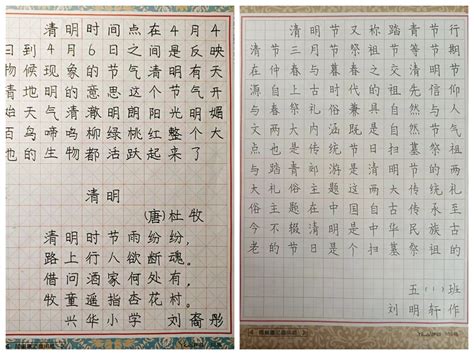 清明时间点在4月4
日到4月6日之间是反映
物候现象的节气清明有天
青地明的意思这个节气开
始天气清澈明朗阳光明媚
百鸟啼鸣柳绿桃红整个大
地的生物都活跃起来了
清明
(唐)杜牧
清明时节雨纷纷，
路上行人欲断魂。
借问酒家何处有，
牧童遥指杏花村。
兴华小学 刘裔彤
清明节又称踏青节行
清节三月节祭祖节等节期
在仲春与暮春之交清明节
源自上古时代的祖先信仰
与春祭礼俗兼具自然与人
文两大内涵既是自然节气
点也是传统节日扫墓祭祖
与踏青郊游是清明节的两
大礼俗主题这两大传统礼
俗主题在中国自古传承
今不辍清明节是中华民族古
老的节日是个扫墓祭祖的
五(1)班
刘明轩作